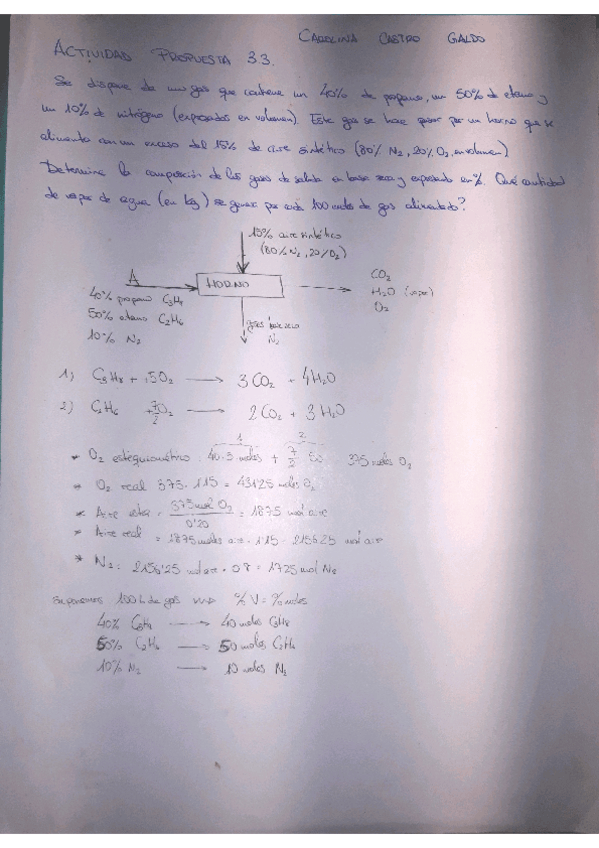 CAROLINA CASTRO GALDO
ACTIVIDAD PROPUESTA 3.3.
Se dispone de un gas que contiene un 40% de propano, un 50% de etano y
un 10% de nitrógeno (expresados en volumen). Este gas se hace pasar por un horno que se
alimenta con un exceso del 15% de aire sintético (80% N2, 20% O2, en volumen)
Determine la composición de los gases de salida en base seca y expresado en %. Qué cantidad
de vapor de agua (en kg) se genera por cada 100 moles de gas alimentado?
15% aire sintético
(80% N2, 20% O2)
A
HORNO
CO2
H2O (vapor)
O2
40% propano C3H8
50% etano C2H6
10% N2
gases base seca
N2
1) C3H8 + 5O2 → 3CO2 + 4H2O
2) C2H6 + 7/2 O2 → 2CO2 + 3H2O
1 2
* O2 estequiométrico: 40·5 moles + 7/2 · 50 = 375 moles O2
* O2 real 375 · 1'15 = 431'25 moles O2
* Aire este = 375 mol O2 / 0'20 = 1875 mol aire
* Aire real = 1875 moles aire · 1'15 = 2156'25 mol aire
* N2 = 2156'25 mol aire · 0'8 = 1725 mol N2
Suponemos 100 L de gas ⟿ %V = % moles
40% C3H8 → 40 moles C3H8
50% C2H6 → 50 moles C2H6
10% N2 → 10 moles N2